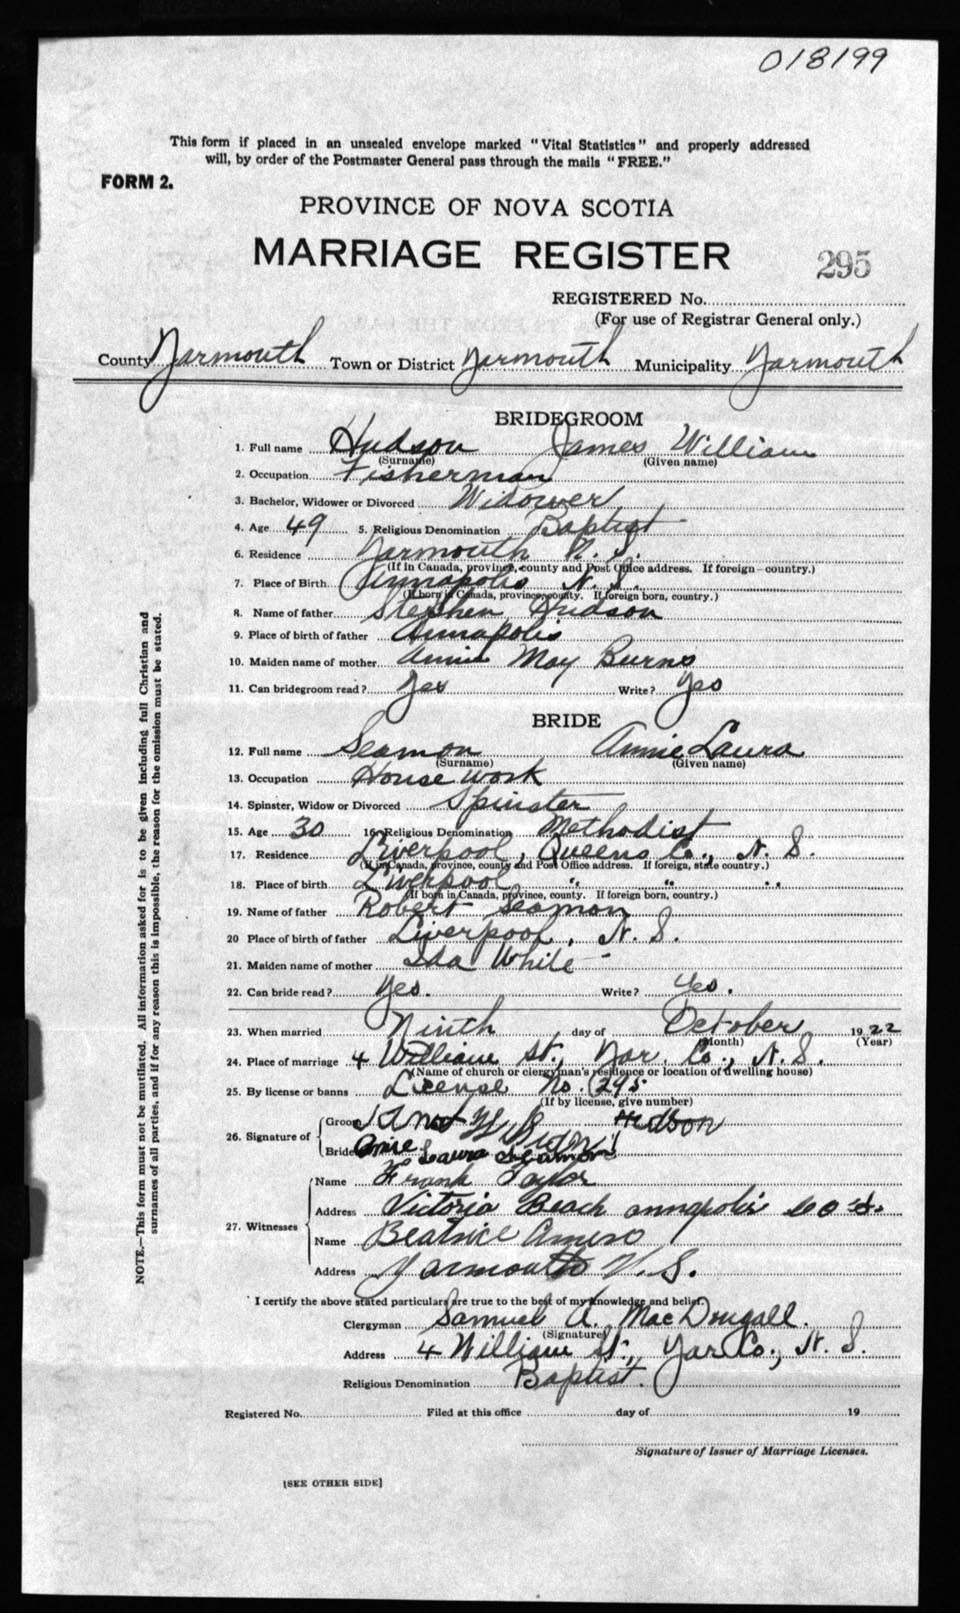 018199
This form if placed in an unsealed envelope marked "Vital Statistics" and properly addressed
will, by order of the Postmaster General pass through the mails "FREE."
FORM 2.
PROVINCE OF NOVA SCOTIA
MARRIAGE REGISTER 295
REGISTERED No.
(For use of Registrar General only.)
County Yarmouth Town or District Yarmouth Municipality Yarmouth
BRIDEGROOM
1. Full name Hudson James William
(Surname) (Given name)
2. Occupation Fisherman
3. Bachelor, Widower or Divorced Widower
4. Age 49 5. Religious Denomination Baptist
6. Residence Yarmouth N. S.
(If in Canada, province, county and Post Office address. If foreign-country.)
7. Place of Birth Annapolis N. S.
(If born in Canada, province, county. If foreign born, country.)
8. Name of father Stephen Hudson
9. Place of birth of father Annapolis
10. Maiden name of mother Annie May Burns
11. Can bridegroom read? Yes Write? Yes
BRIDE
12. Full name Seamon Annie Laura
(Surname) (Given name)
13. Occupation House work
14. Spinster, Widow or Divorced Spinster
15. Age 30 16. Religious Denomination Methodist
17. Residence Liverpool, Queens Co., N. S.
(If in Canada, province, county and Post Office address. If foreign, state country.)
18. Place of birth Liverpool " " "
(If born in Canada, province, county. If foreign born, country.)
19. Name of father Robert Seamon
20 Place of birth of father Liverpool, N. S.
21. Maiden name of mother Ida White
22. Can bride read? Yes. Write? Yes.
23. When married Ninth day of October 1922
(Month) (Year)
24. Place of marriage 4 William St., Yar. Co., N. S.
(Name of church or clergyman's residence or location of dwelling house)
25. By license or banns License No. 295
(If by license, give number)
26. Signature of Groom Hudson
Bride Annie Laura Seamon
27. Witnesses Name Frank Taylor
Address Victoria Beach annapolis
Name Beatrice Amiro
Address Yarmouth N. S.
I certify the above stated particulars are true to the best of my knowledge and belief.
Clergyman Samuel A. MacDougall.
(Signature)
Address 4 William St., Yar Co., N. S.
Religious Denomination Baptist.
Registered No. Filed at this office day of 19
Signature of Issuer of Marriage Licenses.
[SEE OTHER SIDE]
NOTE.—This form must not be mutilated. All information asked for is to be given including full Christian and
surnames of all parties, and if for any reason this is impossible, the reason for the omission must be stated.